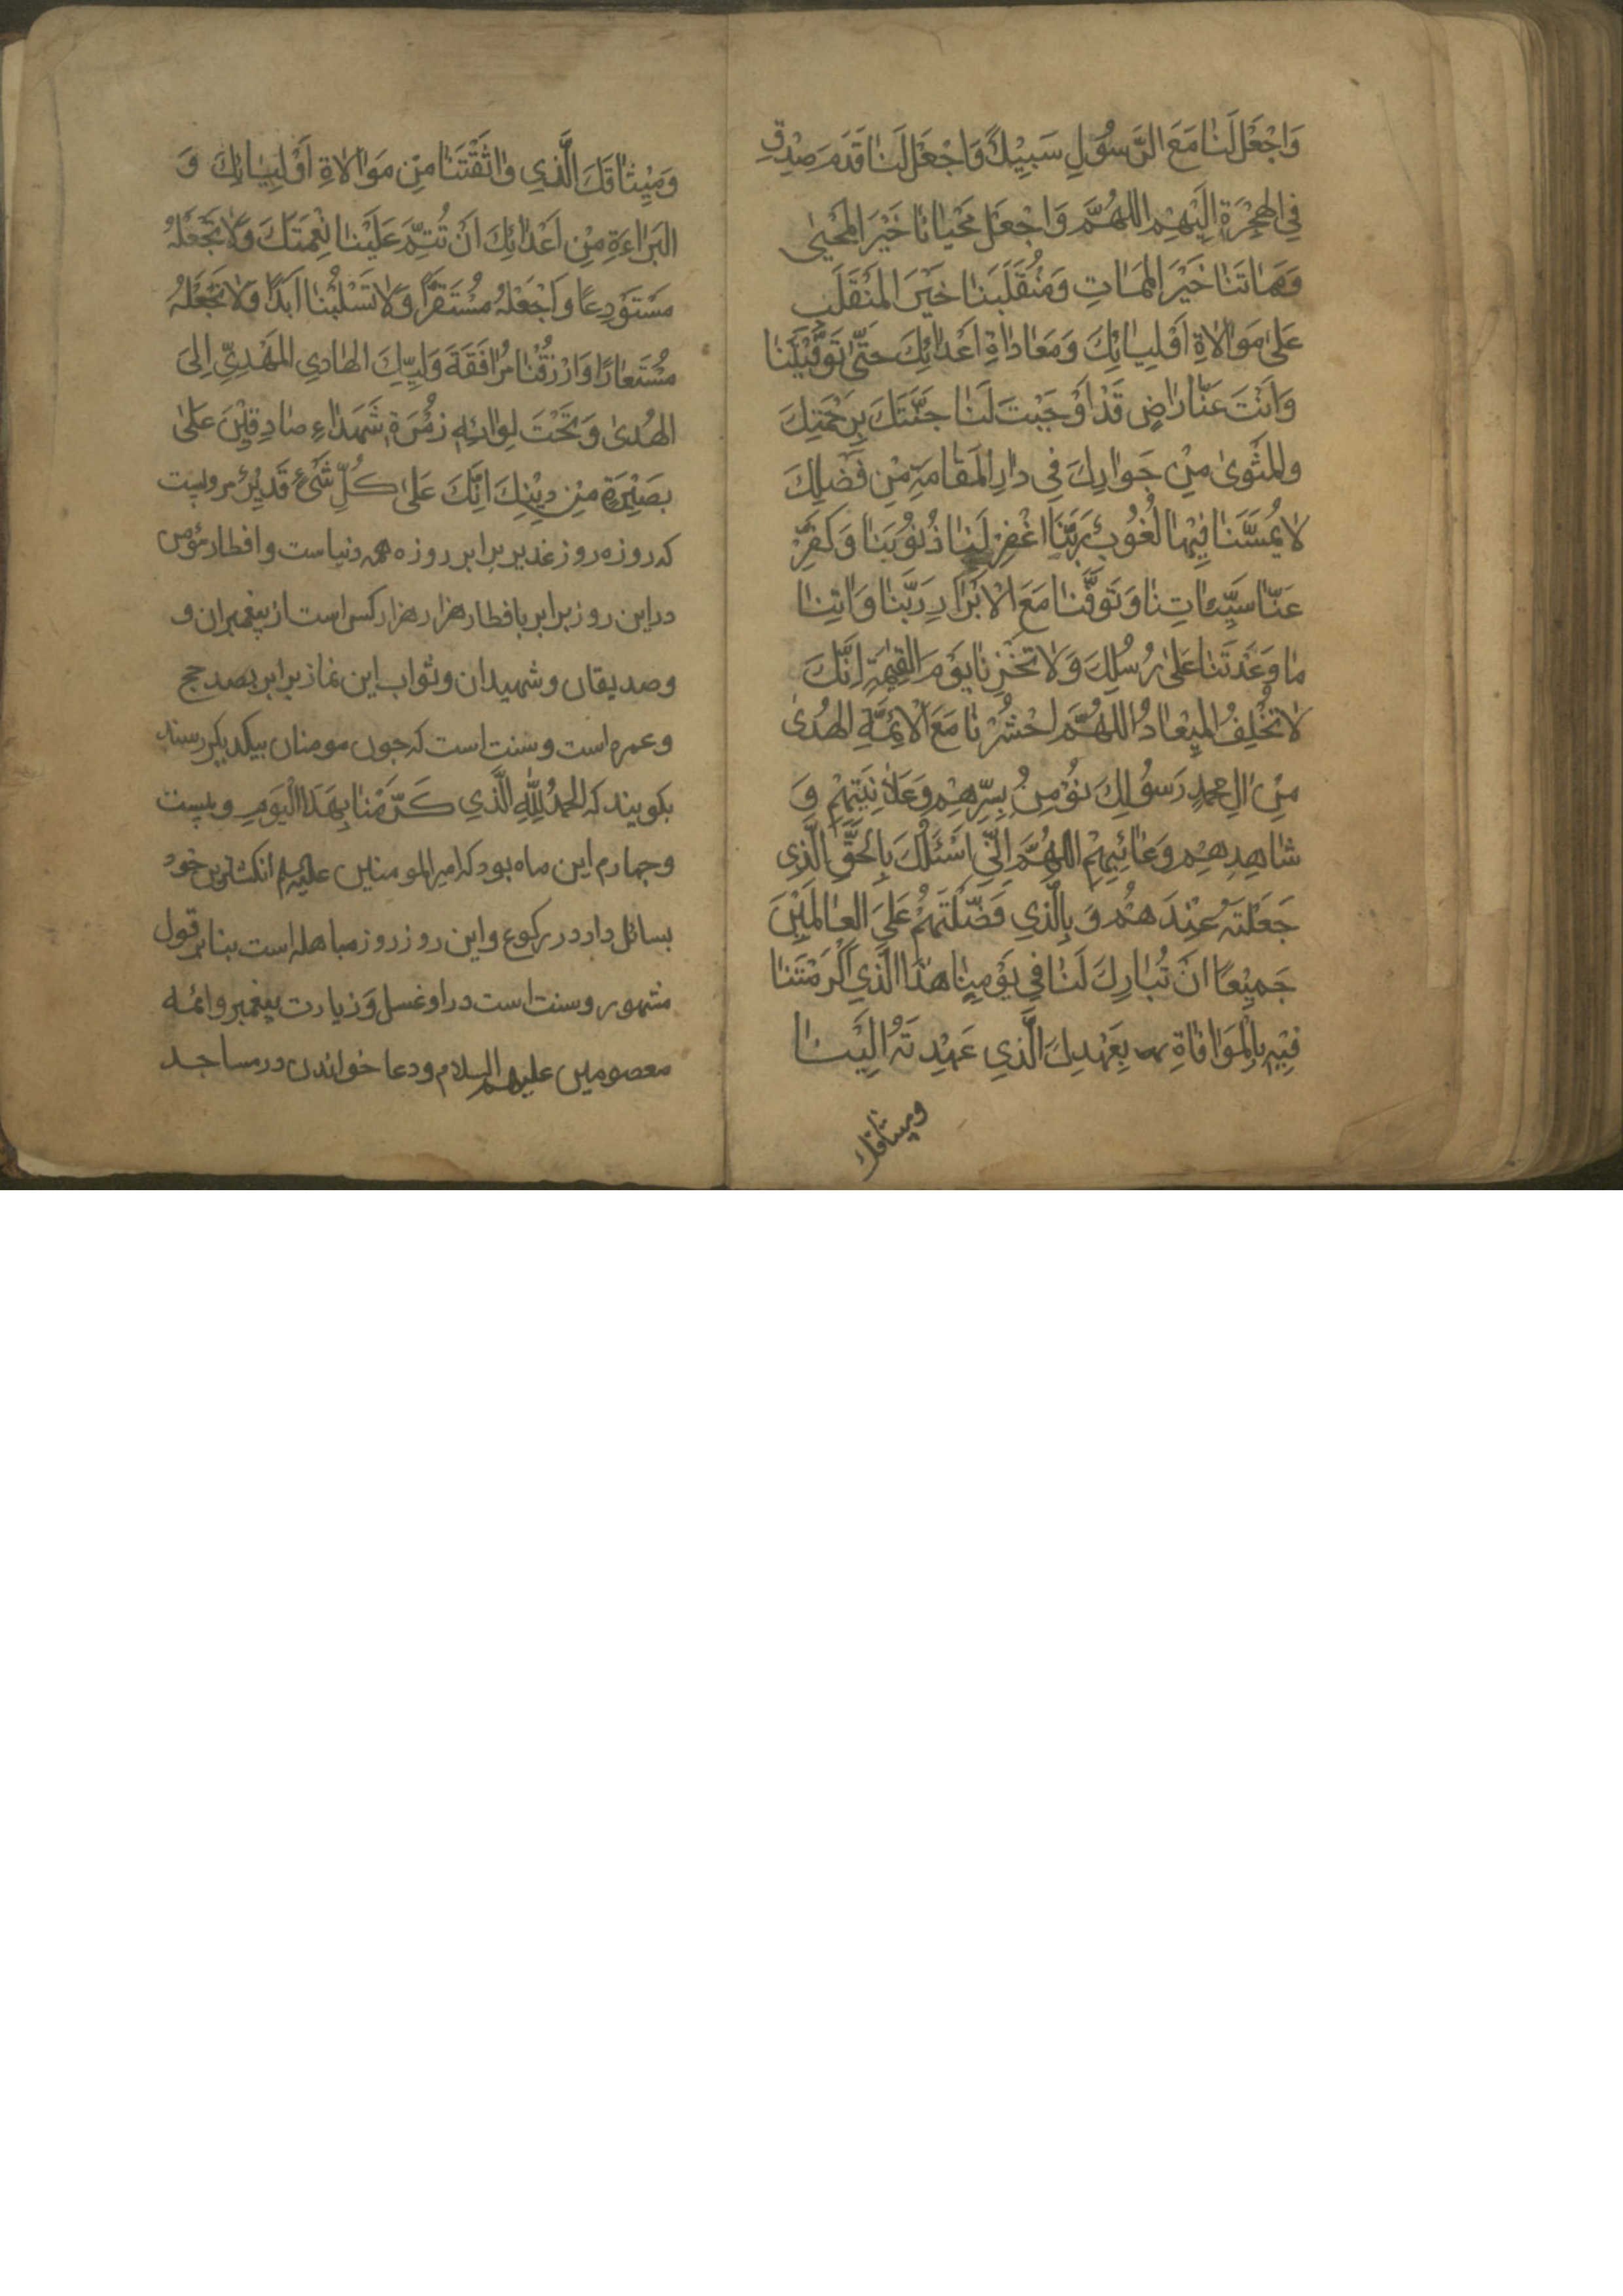 وَاجْعَلْ لَنَا مَعَ الرَّسُوْلِ سَبِيْلًا وَاجْعَلْ لَنَا قَدَمَ صِدْقٍ
فِي الْهِجْرَةِ اِلَيْهِمْ اللهُمَّ وَاجْعَلْ مَحْيَانَا خَيْرَ الْمَحْيٰى
وَمَمَاتَنَا خَيْرَ الْمَمَاتِ وَمُنْقَلَبَنَا خَيْرَ الْمُنْقَلَبِ
عَلٰى مَوَالَاةِ اَوْلِيَائِكَ وَمَعَادَاةِ اَعْدَائِكَ حَتّٰى تَوَفَّيْتَنَا
وَاَنْتَ عَنَّا رَاضٍ قَدْ اَوْجَبْتَ لَنَا جَنَّتَكَ بِرَحْمَتِكَ
وَالْمَثْوٰى مِنْ جَوَارِكَ فِي دَارِ الْمَقَامَةِ مِنْ فَضْلِكَ
لَا يَمَسَّنَا فِيْهَا لُغُوْبٌ رَبَّنَا اغْفِرْ لَنَا ذُنُوْبَنَا وَكَفِّرْ
عَنَّا سَيِّئَاتِنَا وَتَوَفَّنَا مَعَ الْاَبْرَارِ رَبَّنَا وَاٰتِنَا
مَا وَعَدْتَنَا عَلٰى رُسُلِكَ وَلَا تُخْزِنَا يَوْمَ الْقِيٰمَةِ اِنَّكَ
لَا تُخْلِفُ الْمِيْعَادُ اللهُمَّ احْشُرْنَا مَعَ الْاَئِمَّةِ الْهُدٰى
مِنْ اٰلِ مُحمدٍ رَسُوْلِكَ نُؤْمِنُ بِسِرِّهِمْ وَعَلَانِيَتِهِمْ وَ
شَاهِدِهِمْ وَغَائِبِهِمْ اللهُمَّ اِنِّي اَسْئَلُكَ بِالْحَقِّ الَّذِي
جَعَلْتَهُ عِنْدَهُمْ وَ بِالَّذِي فَضَّلْتَهُمْ عَلَى الْعَالَمِيْنَ
جَمِيْعًا اَنْ تُبَارِكَ لَنَا فِي يَوْمِنَا هٰذَا الَّذِي اَكْرَمْتَنَا
فِيْهِ بِالْمَوَافَاةِ بِعَهْدِكَ الَّذِي عَهِدْتَهُ اِلَيْنَا
وميثاقك
وَمِيْثَاقَكَ الَّذِي وَاثَقْتَنَا مِنْ مَوَالَاةِ اَوْلِيَائِكَ وَ
الْبَرَاءَةِ مِنْ اَعْدَائِكَ اَنْ تُتِمَّ عَلَيْنَا نِعْمَتَكَ وَلَا تَجْعَلْهُ
مُسْتَوْدِعًا وَاجْعَلْهُ مُسْتَقَرًّا وَلَا تَسْلُبْنَا اَبَدًا وَلَا تَجْعَلْهُ
مُسْتَعَارًا وَارْزُقْنَا مُرَافَقَةَ وَلِيِّكَ الْهَادِي الْمَهْدِيِّ اِلَى
الْهُدٰى وَتَحْتَ لِوَائِهِ زُمْرَةَ شُهَدَاءِ صَادِقِيْنَ عَلٰى
بَصِيْرَةٍ مِنْ دِيْنِكَ اِنَّكَ عَلٰى كُلِّ شَيْءٍ قَدِيْرٌ مرويست
که روزه روز غدیر برابر روزه همه دنیاست و افطار مؤمن
دراین روز برابر با افطار هزار هزار کس است از پیغمبران و
وصدیقان و شهیدان و ثواب این نماز برابر بصد حج
و عمره است و سنت است که چون مومنان بیکدیکر رسند
بکویند که الْحَمْدُ لِلّٰهِ الَّذِي كَرَّمَنَا بِهَذَا الْيَوْمِ و بیست
و چهارم این ماه بود که امیر المومنین علیه السلم انکشترین خود
بسائل داد در رکوع و این روز روز مباهله است بنابر قول
مشهور و سنت است در او غسل وَ زیارت پیغمبر و ائمه
معصومین علیهم السلام و دعا خواندن در مساجد